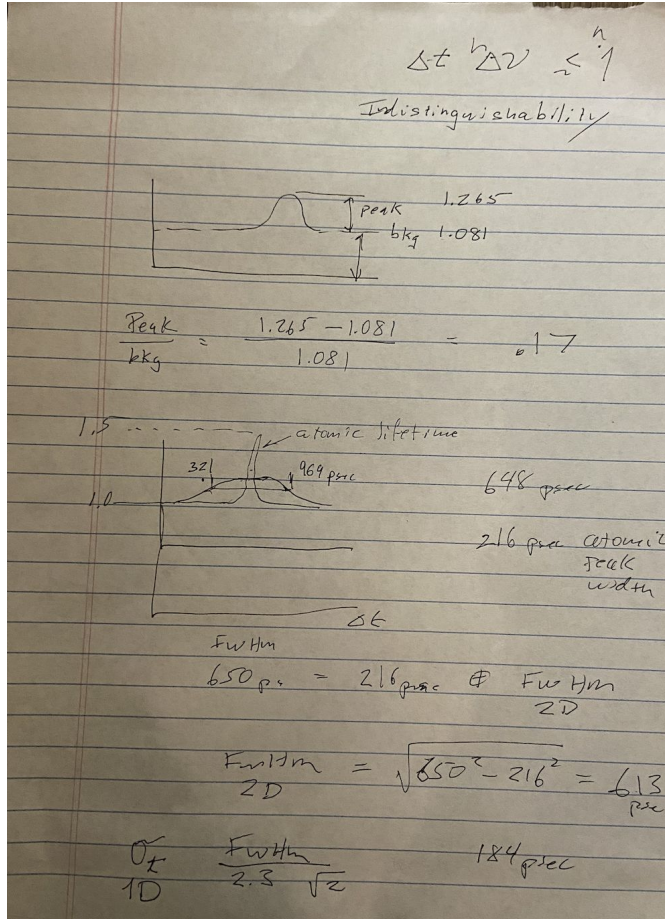 Δt Δν ≲ 1
Indistinguishability
peak 1.265
bkg 1.081
Peak / bkg = (1.265 − 1.081) / 1.081 = .17
1.5 atomic lifetime
321 969 psec 648 psec
1.0
216 psec atomic
peak
width
Δt
FWHM
650 ps = 216 psec ⊕ FWHM
2D
FWHM = √(650² − 216²) = 613
2D psec
σt FWHM 184 psec
1D 2.3 √2